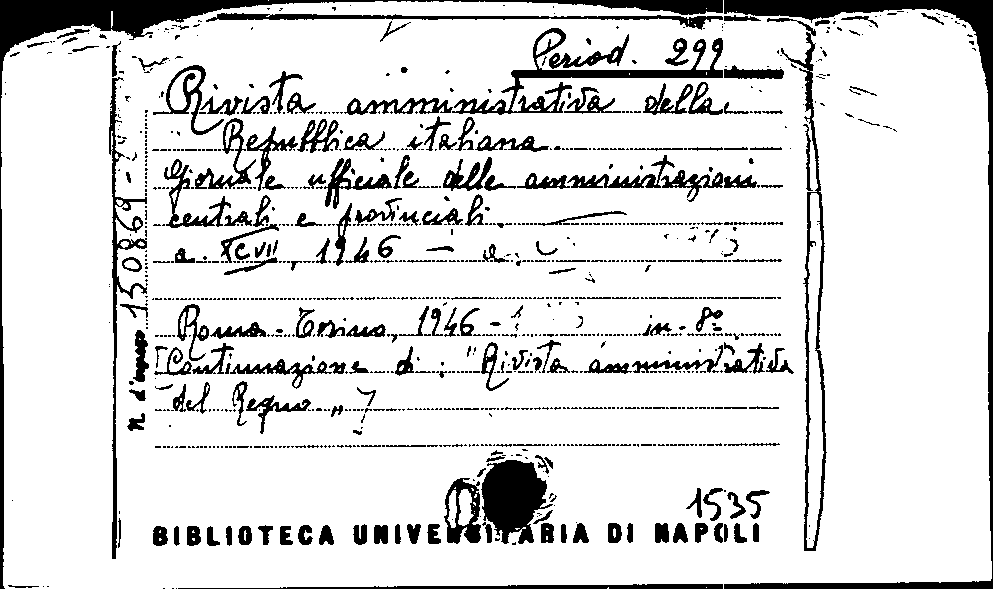 Period. 299.
Rivista amministrativa della
Repubblica italiana.
Giornale ufficiale delle amministrazioni
centrali e provinciali.
a. XCVII, 1946 — a.
Roma - Torino, 1946 - in-8º
[Continuazione di: "Rivista amministrativa
del Regno"]
N. d'ingresso 150869
1535
BIBLIOTECA UNIVERSITARIA DI NAPOLI